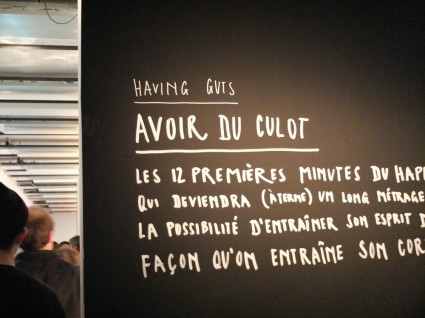 HAVING GUTS
AVOIR DU CULOT
LES 12 PREMIÈRES MINUTES DU HAP
QUI DEVIENDRA (À TERME) UN LONG MÉTRAGE
LA POSSIBILITÉ D'ENTRAÎNER SON ESPRIT D
FAÇON QU'ON ENTRAÎNE SON COR